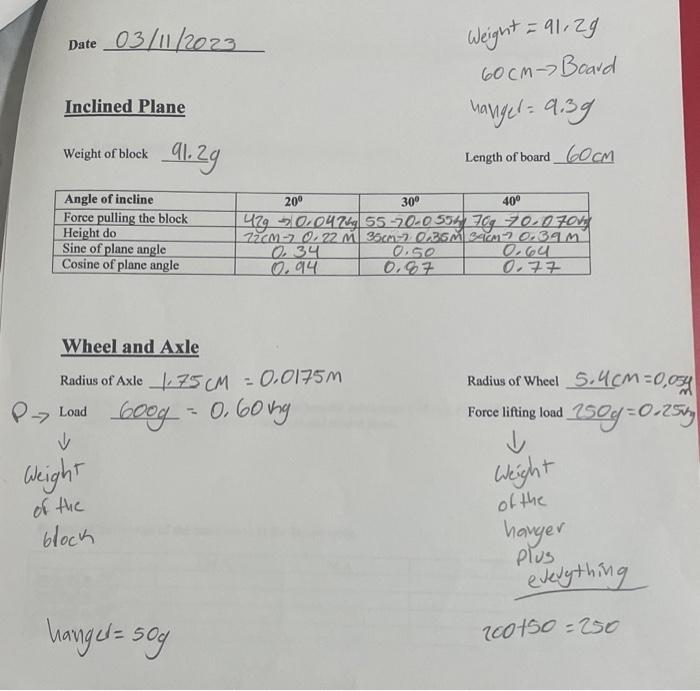 Date 03/11/2023
Weight = 91.2g
60cm → Board
hanger = 9.3g
Inclined Plane
Weight of block 91.2g
Length of board 60cm
Angle of incline 20⁰ 30⁰ 40⁰
Force pulling the block 47g → 0.047kg 55 → 0.055kg 70g → 0.070kg
Height do 22cm → 0.22 M 35cm → 0.35M 39cm → 0.39 M
Sine of plane angle 0.34 0.50 0.64
Cosine of plane angle 0.94 0.87 0.77
Wheel and Axle
Radius of Axle 1.75 cM = 0.0175M
Radius of Wheel 5.4cm = 0.054 m
P → Load 600g = 0.60 kg
Force lifting load 250g = 0.25kg
↓
Weight
of the
block
↓
Weight
of the
hanger
plus
everything
hanger = 50g
200+50 = 250